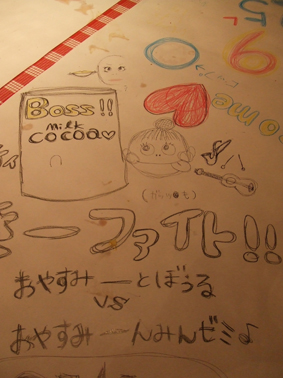 6
Boss!!
milk
cocoa♡
ーファイト!!
おやすみーとぼうる
vs
おやすみ
んみんゼミ♪